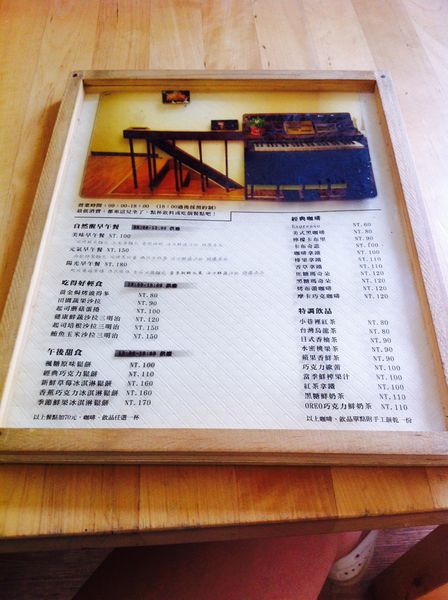 營業時間：09:00-18:00 (18:00過後採預約制)
最低消費：都來這兒坐了，一點杯飲料或吃個餐點吧！
自然醒早午餐 供應
美味早午餐 NT.100
元氣早午餐 NT.150
陽光早午餐 NT.180
吃得好輕食 供應
黃金焗烤波得多 NT. 80
田園蔬果沙拉 NT. 90
起司蘑菇蛋捲 NT. 100
健康鮮蔬沙拉三明治 NT. 120
起司培根沙拉三明治 NT. 150
鮪魚玉米沙拉三明治 NT. 150
午後甜食 供應
楓糖原味鬆餅 NT.100
經典巧克力鬆餅 NT.110
新鮮草莓冰淇淋鬆餅 NT.160
香蕉巧克力冰淇淋鬆餅 NT.160
季節鮮果冰淇淋鬆餅 NT.170
以上餐點加70元，咖啡、飲品任選一杯
經典咖啡
Espresso NT.60
美式黑咖啡 NT. 80
檸檬卡布里 NT. 90
卡布奇諾 NT.100
咖啡拿鐵 NT.100
榛果拿鐵 NT.110
香草拿鐵 NT.110
焦糖瑪奇朵 NT.120
黑糖瑪奇朵 NT.120
烤布蕾咖啡 NT.120
摩卡巧克咖啡 NT.120
特調飲品
小巷裡紅茶 NT. 80
台灣烏龍茶 NT. 80
日式香柚茶 NT. 90
水蜜桃果茶 NT. 90
蘋果香鮮茶 NT. 90
巧克力歐蕾 NT.100
當季鮮榨果汁 NT.100
紅茶拿鐵 NT.100
黑糖鮮奶茶 NT.110
OREO巧克力鮮奶茶 NT.110
以上咖啡、飲品單點附手工餅乾一份